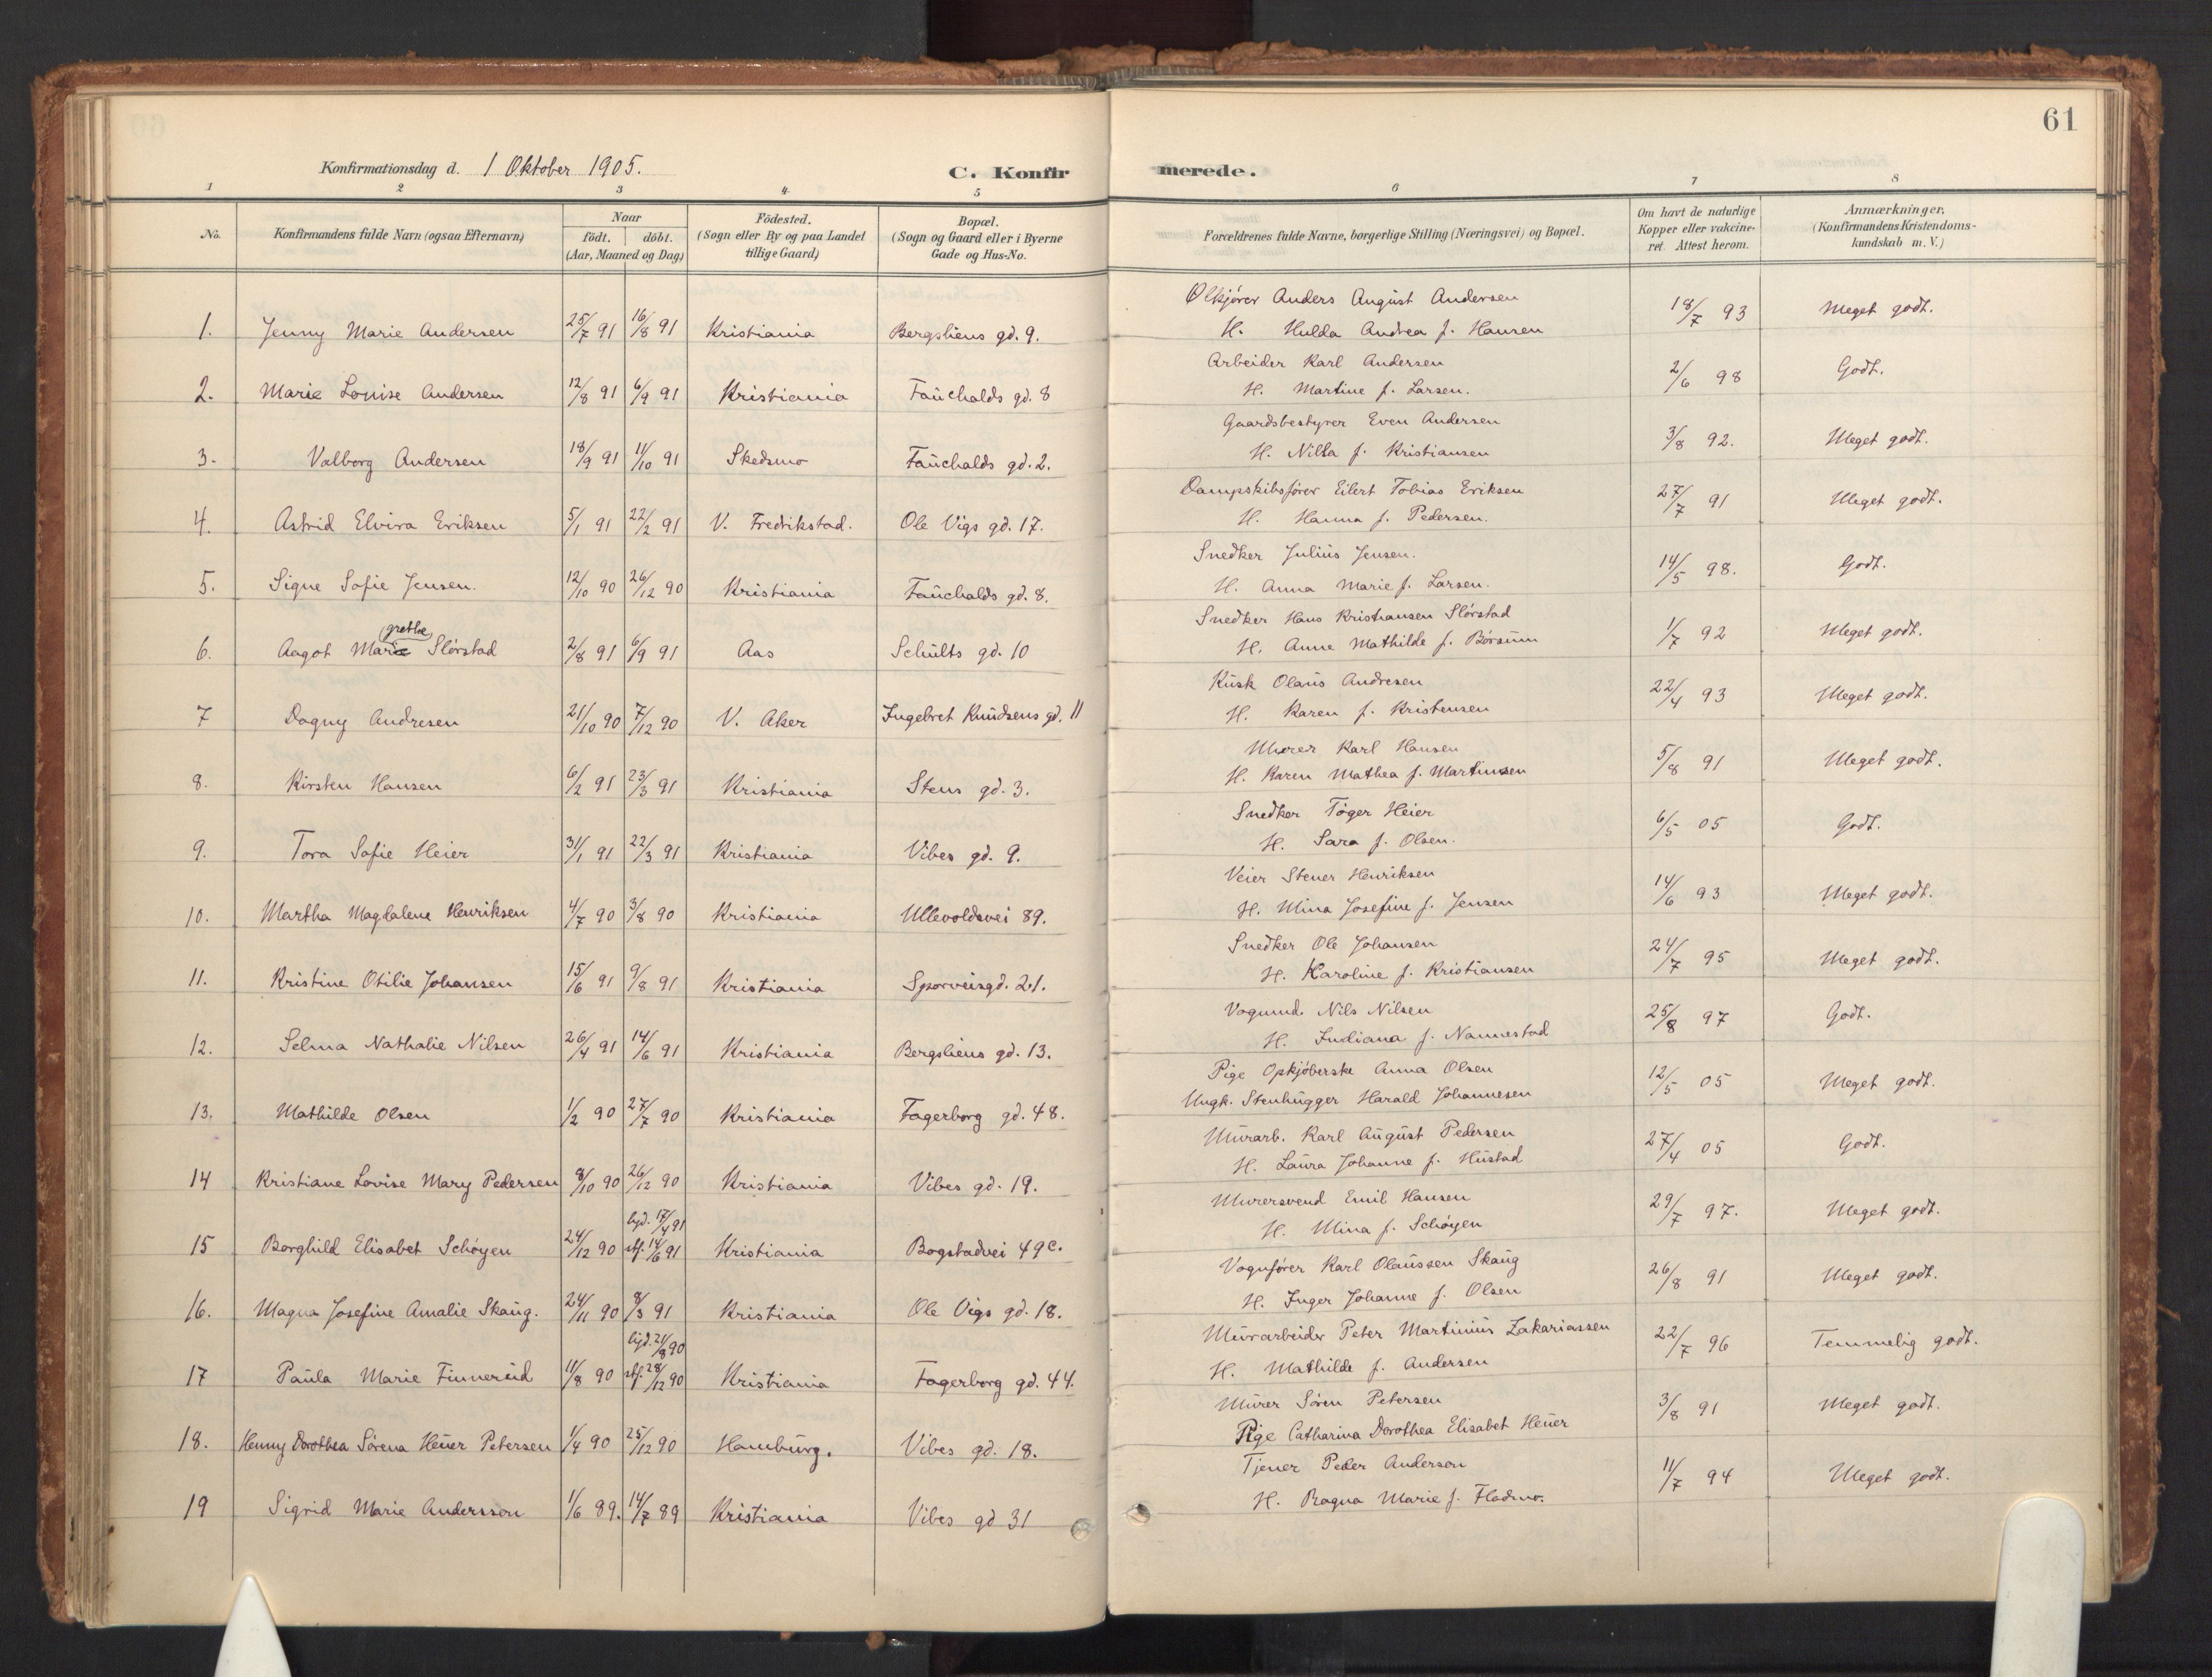 61
Konfirmationsdag d. 1 Oktober 1905.
C. Konfirmerede.
1 2 3 4 5 6 7 8
No.
Konfirmandens fulde Navn (ogsaa Efternavn)
Naar
födt. döbt.
(Aar, Maaned og Dag)
Födested.
(Sogn eller By og paa Landet
tillige Gaard)
Bopæl.
(Sogn og Gaard eller i Byerne
Gade og Hus-No.
Forældrenes fulde Navne, borgerlige Stilling (Næringsvei) og Bopæl.
Om havt de naturlige
Kopper eller vakcine-
ret. Attest herom.
Anmærkninger.
(Konfirmandens Kristendoms-
kundskab m. V.)
1. Jenny Marie Andersen 25/7 91 16/8 91 Kristiania Bergsliens gd. 9. Ølkjører Anders August Andersen 18/7 93 Meget godt.
H. Hulda Andrea f. Hansen
2. Marie Louise Andersen 12/8 91 6/9 91 Kristiania Fauchalds gd. 8 Arbeider Karl Andersen 2/6 98 Godt.
H. Martine f. Larsen.
3. Valborg Andersen 18/9 91 11/10 91 Skedsmo Fauchalds gd. 2. Gaardsbestyrer Even Andersen 3/8 92. Meget godt.
H. Nilla f. Kristiansen
4. Astrid Elvira Eriksen 5/1 91 22/2 91 V. Fredrikstad. Ole Vigs gd. 17. Dampskibsfører Eilert Tobias Eriksen 27/7 91 Meget godt.
H. Hanna f. Pedersen.
5. Signe Sofie Jensen. 12/10 90 26/12 90 Kristiania Fauchalds gd. 8. Snedker Julius Jensen. 14/5 98. Godt.
H. Anna Marie f. Larsen.
grethe
6. Aagot Marie Slørstad 2/8 91 6/9 91 Aas Schults gd. 10 Snedker Hans Kristiansen Slørstad 1/7 92 Meget godt.
H. Anne Mathilde f. Børsum
7 Dagny Andresen 21/10 90 7/12 90 V. Aker Ingebret Knudsens gd. 11 Kusk Olaus Andresen 22/4 93 Meget godt.
H. Karen f. Kristensen
8. Kirsten Hansen 6/2 91 23/3 91 Kristiania Stens gd. 3. Murer Karl Hansen 5/8 91 Meget godt.
H. Karen Mathea f. Martinsen
9. Tora Sofie Heier 31/1 91 22/3 91 Kristiania Vibes gd. 9. Snedker Tøger Heier 6/5 05 Godt.
H. Sara f. Olsen.
10. Martha Magdalene Henriksen 4/7 90 3/8 90 Kristiania Ullevoldsvei 89. Veier Stener Henriksen 14/6 93 Meget godt.
H. Mina Josefine f. Jensen
11. Kristine Otilie Johansen 15/6 91 9/8 91 Kristiania Sporveisgd. 21. Snedker Ole Johansen 24/7 95 Meget godt.
H. Karoline f. Kristiansen
12. Selma Nathalie Nilsen 26/4 91 14/6 91 Kristiania Bergsliens gd. 13. Vognmd. Nils Nilsen 25/8 97 Godt.
H. Indiana f. Nannestad
13. Mathilde Olsen 1/2 90 27/7 90 Kristiania Fagerborg gd. 48. Pige Opkjøberske Anna Olsen 12/5 05 Meget godt.
Ungk. Stenhugger Harald Johannesen
14 Kristiane Lovise Mary Pedersen 8/10 90 26/12 90 Kristiania Vibes gd. 19. Murarb. Karl August Pedersen 27/4 05 Godt.
H. Laura Johanne f. Hustad
hjd. 17/4 91
15 Borghild Elisabet Schøyen 24/12 90 stf. 14/6 91 Kristiania Bogstadvei 49c. Murersvend Emil Hansen 29/7 97. Meget godt.
H. Mina f. Schøyen
16. Magna Josefine Amalie Skaug. 24/11 90 8/3 91 Kristiania Ole Vigs gd. 18. Vognfører Karl Olaussen Skaug 26/8 91 Meget godt.
H. Inger Johanne f. Olsen
hjd. 21/8 90
17 Paula Marie Finnerud 11/8 90 stf. 28/12 90 Kristiania Fagerborg gd. 44. Murarbeider Peter Martinius Zakariassen 22/7 96 Temmelig godt.
H. Mathilde f. Andersen
18. Henny Dorothea Sørena Heuer Petersen 1/4 90 25/12 90 Hamburg. Vibes gd. 18. Murer Søren Petersen 3/8 91 Meget godt.
Pige Catharina Dorothea Elisabet Heuer
19 Sigrid Marie Andersson 1/6 89. 14/7 89 Kristiania Vibes gd 31 Tjener Peder Anderson 11/7 94 Meget godt.
H. Ragna Marie f. Fladmo.